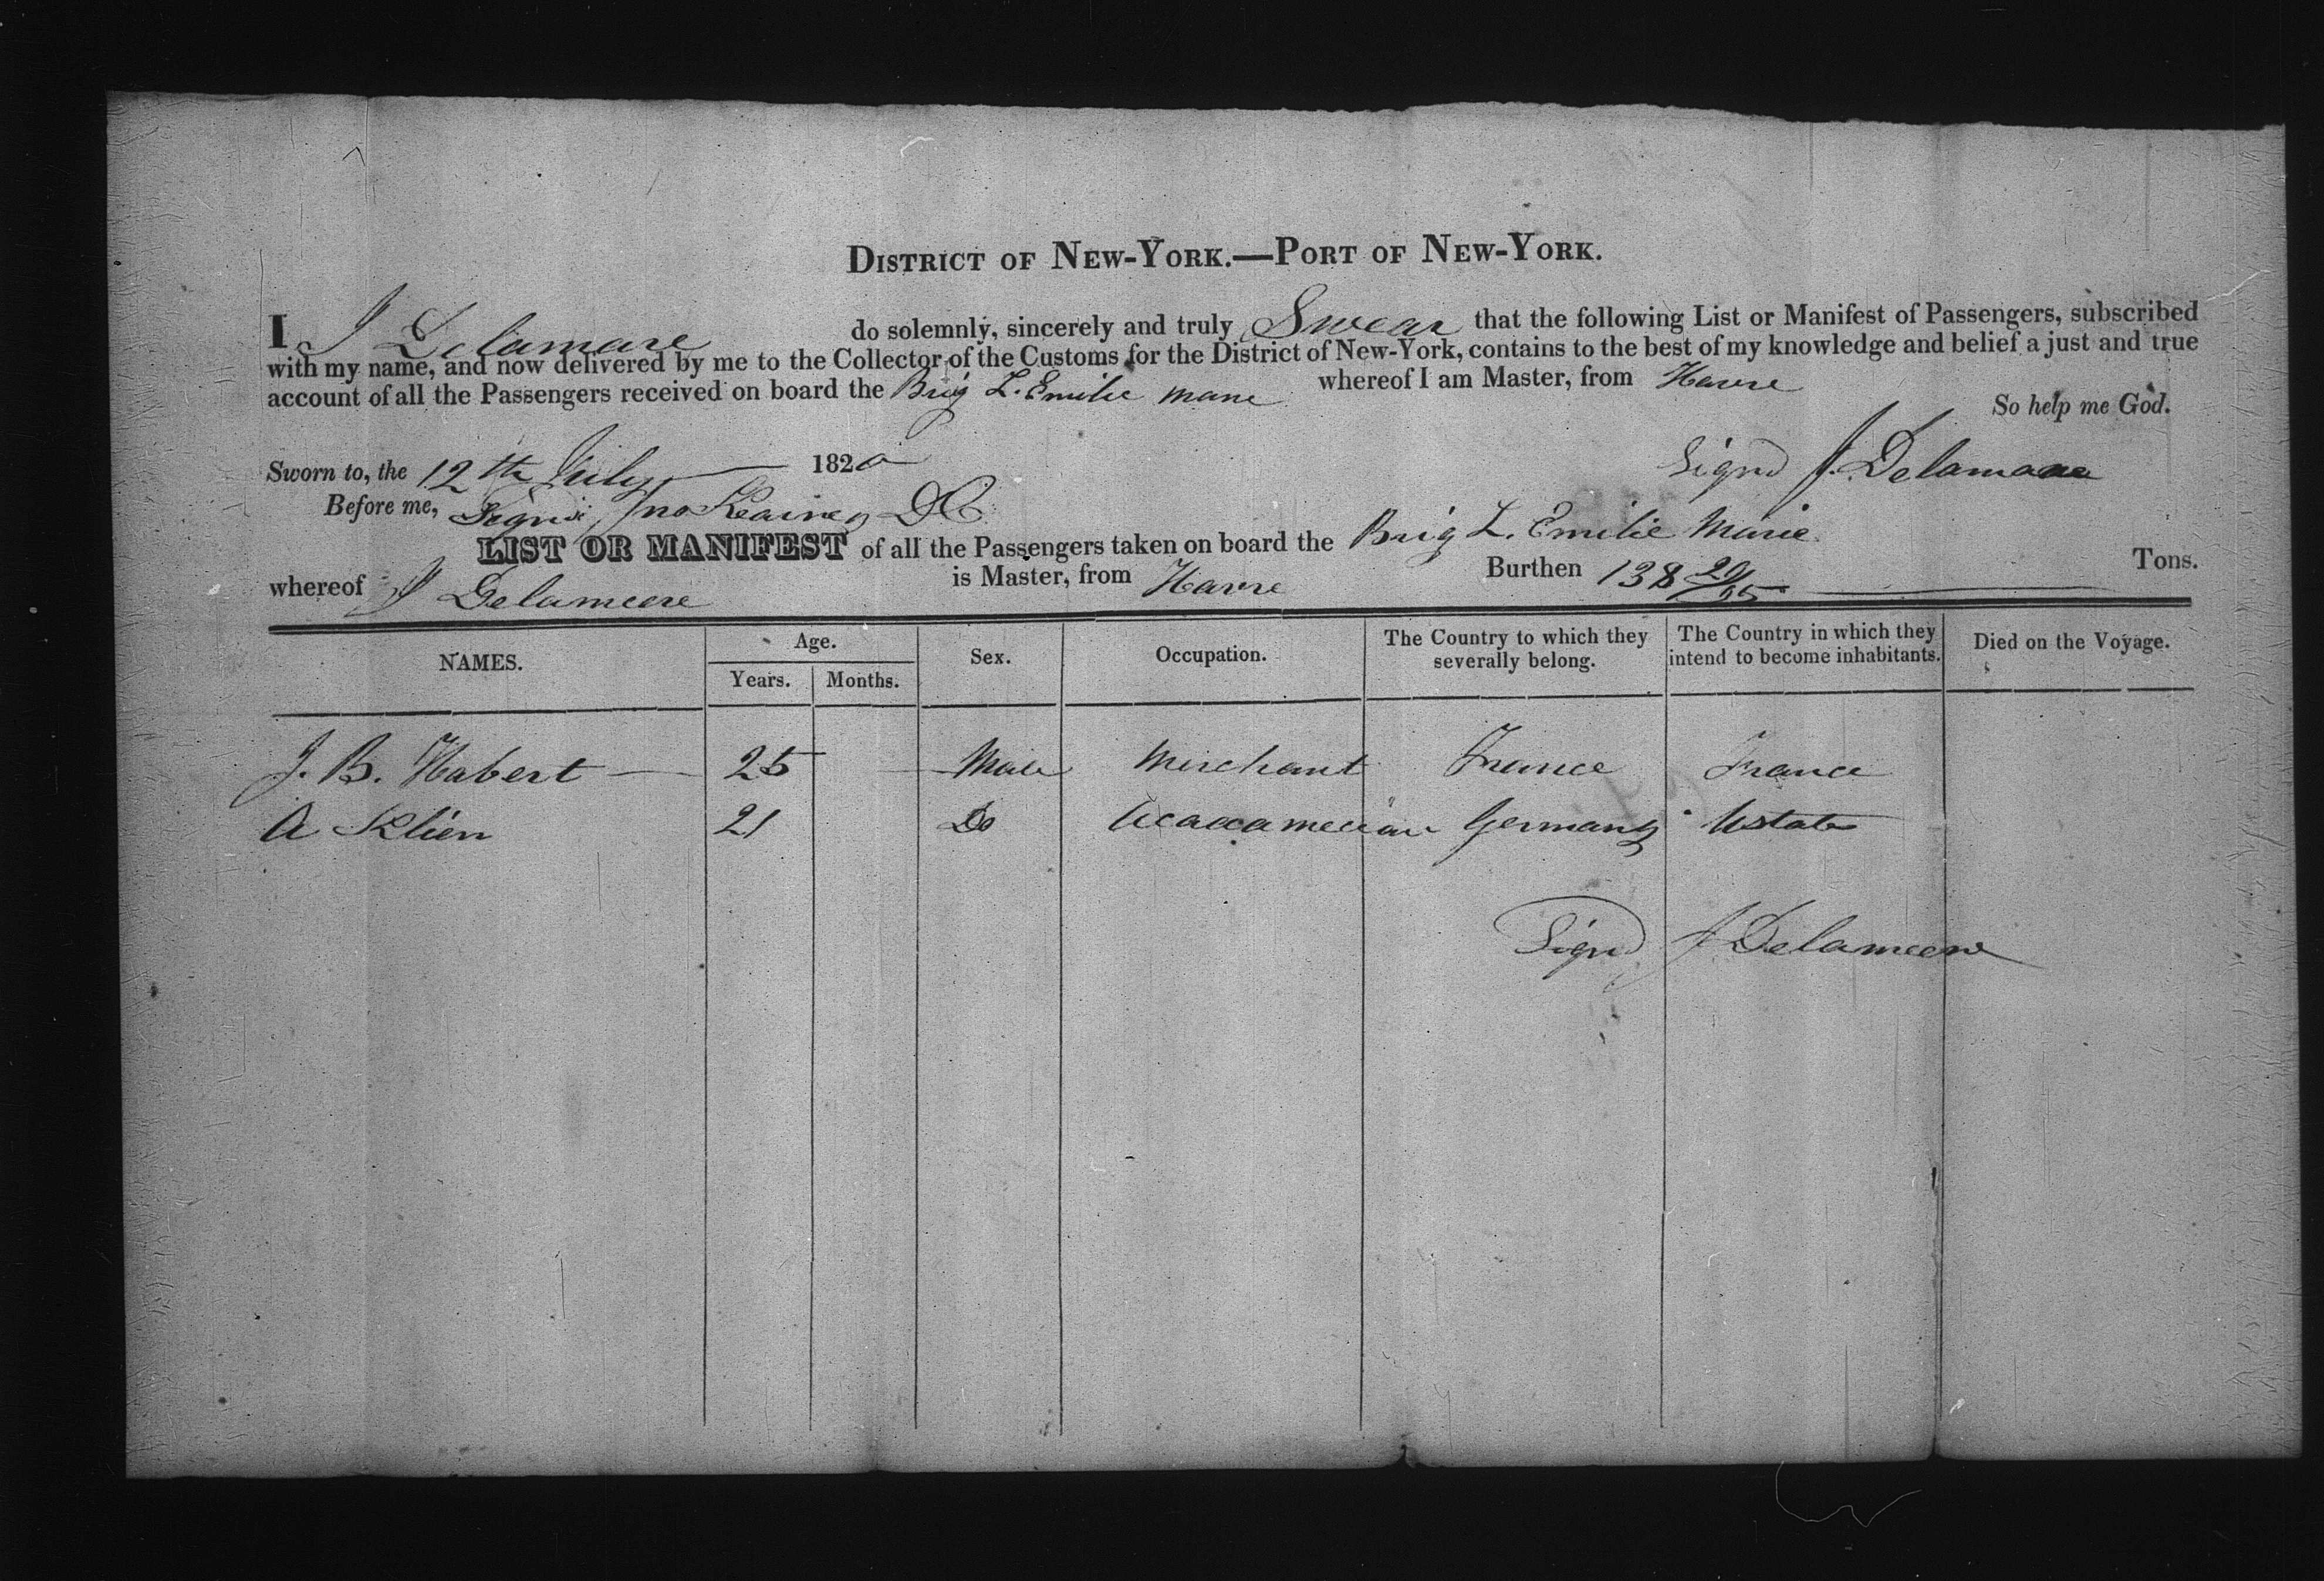 DISTRICT OF NEW-YORK.—PORT OF NEW-YORK.
I J Delamare do solemnly, sincerely and truly Swear that the following List or Manifest of Passengers, subscribed
with my name, and now delivered by me to the Collector of the Customs for the District of New-York, contains to the best of my knowledge and belief a just and true
account of all the Passengers received on board the Brig L. Emilie Marie whereof I am Master, from Havre
So help me God.
Sworn to, the 12th July 1820 Signd J. Delamare
Before me, Signd, Jno Kearney DC
LIST OR MANIFEST of all the Passengers taken on board the Brig L. Emilie Marie
whereof J Delamere is Master, from Havre Burthen 138 29/95 Tons.
NAMES. Age. Sex. Occupation. The Country to which they severally belong. The Country in which they intend to become inhabitants. Died on the Voyage.
Years. Months.
J. B. Habert 25 Male Merchant France France
A Klien 21 Do Germany Ustates
Signd J Delamere